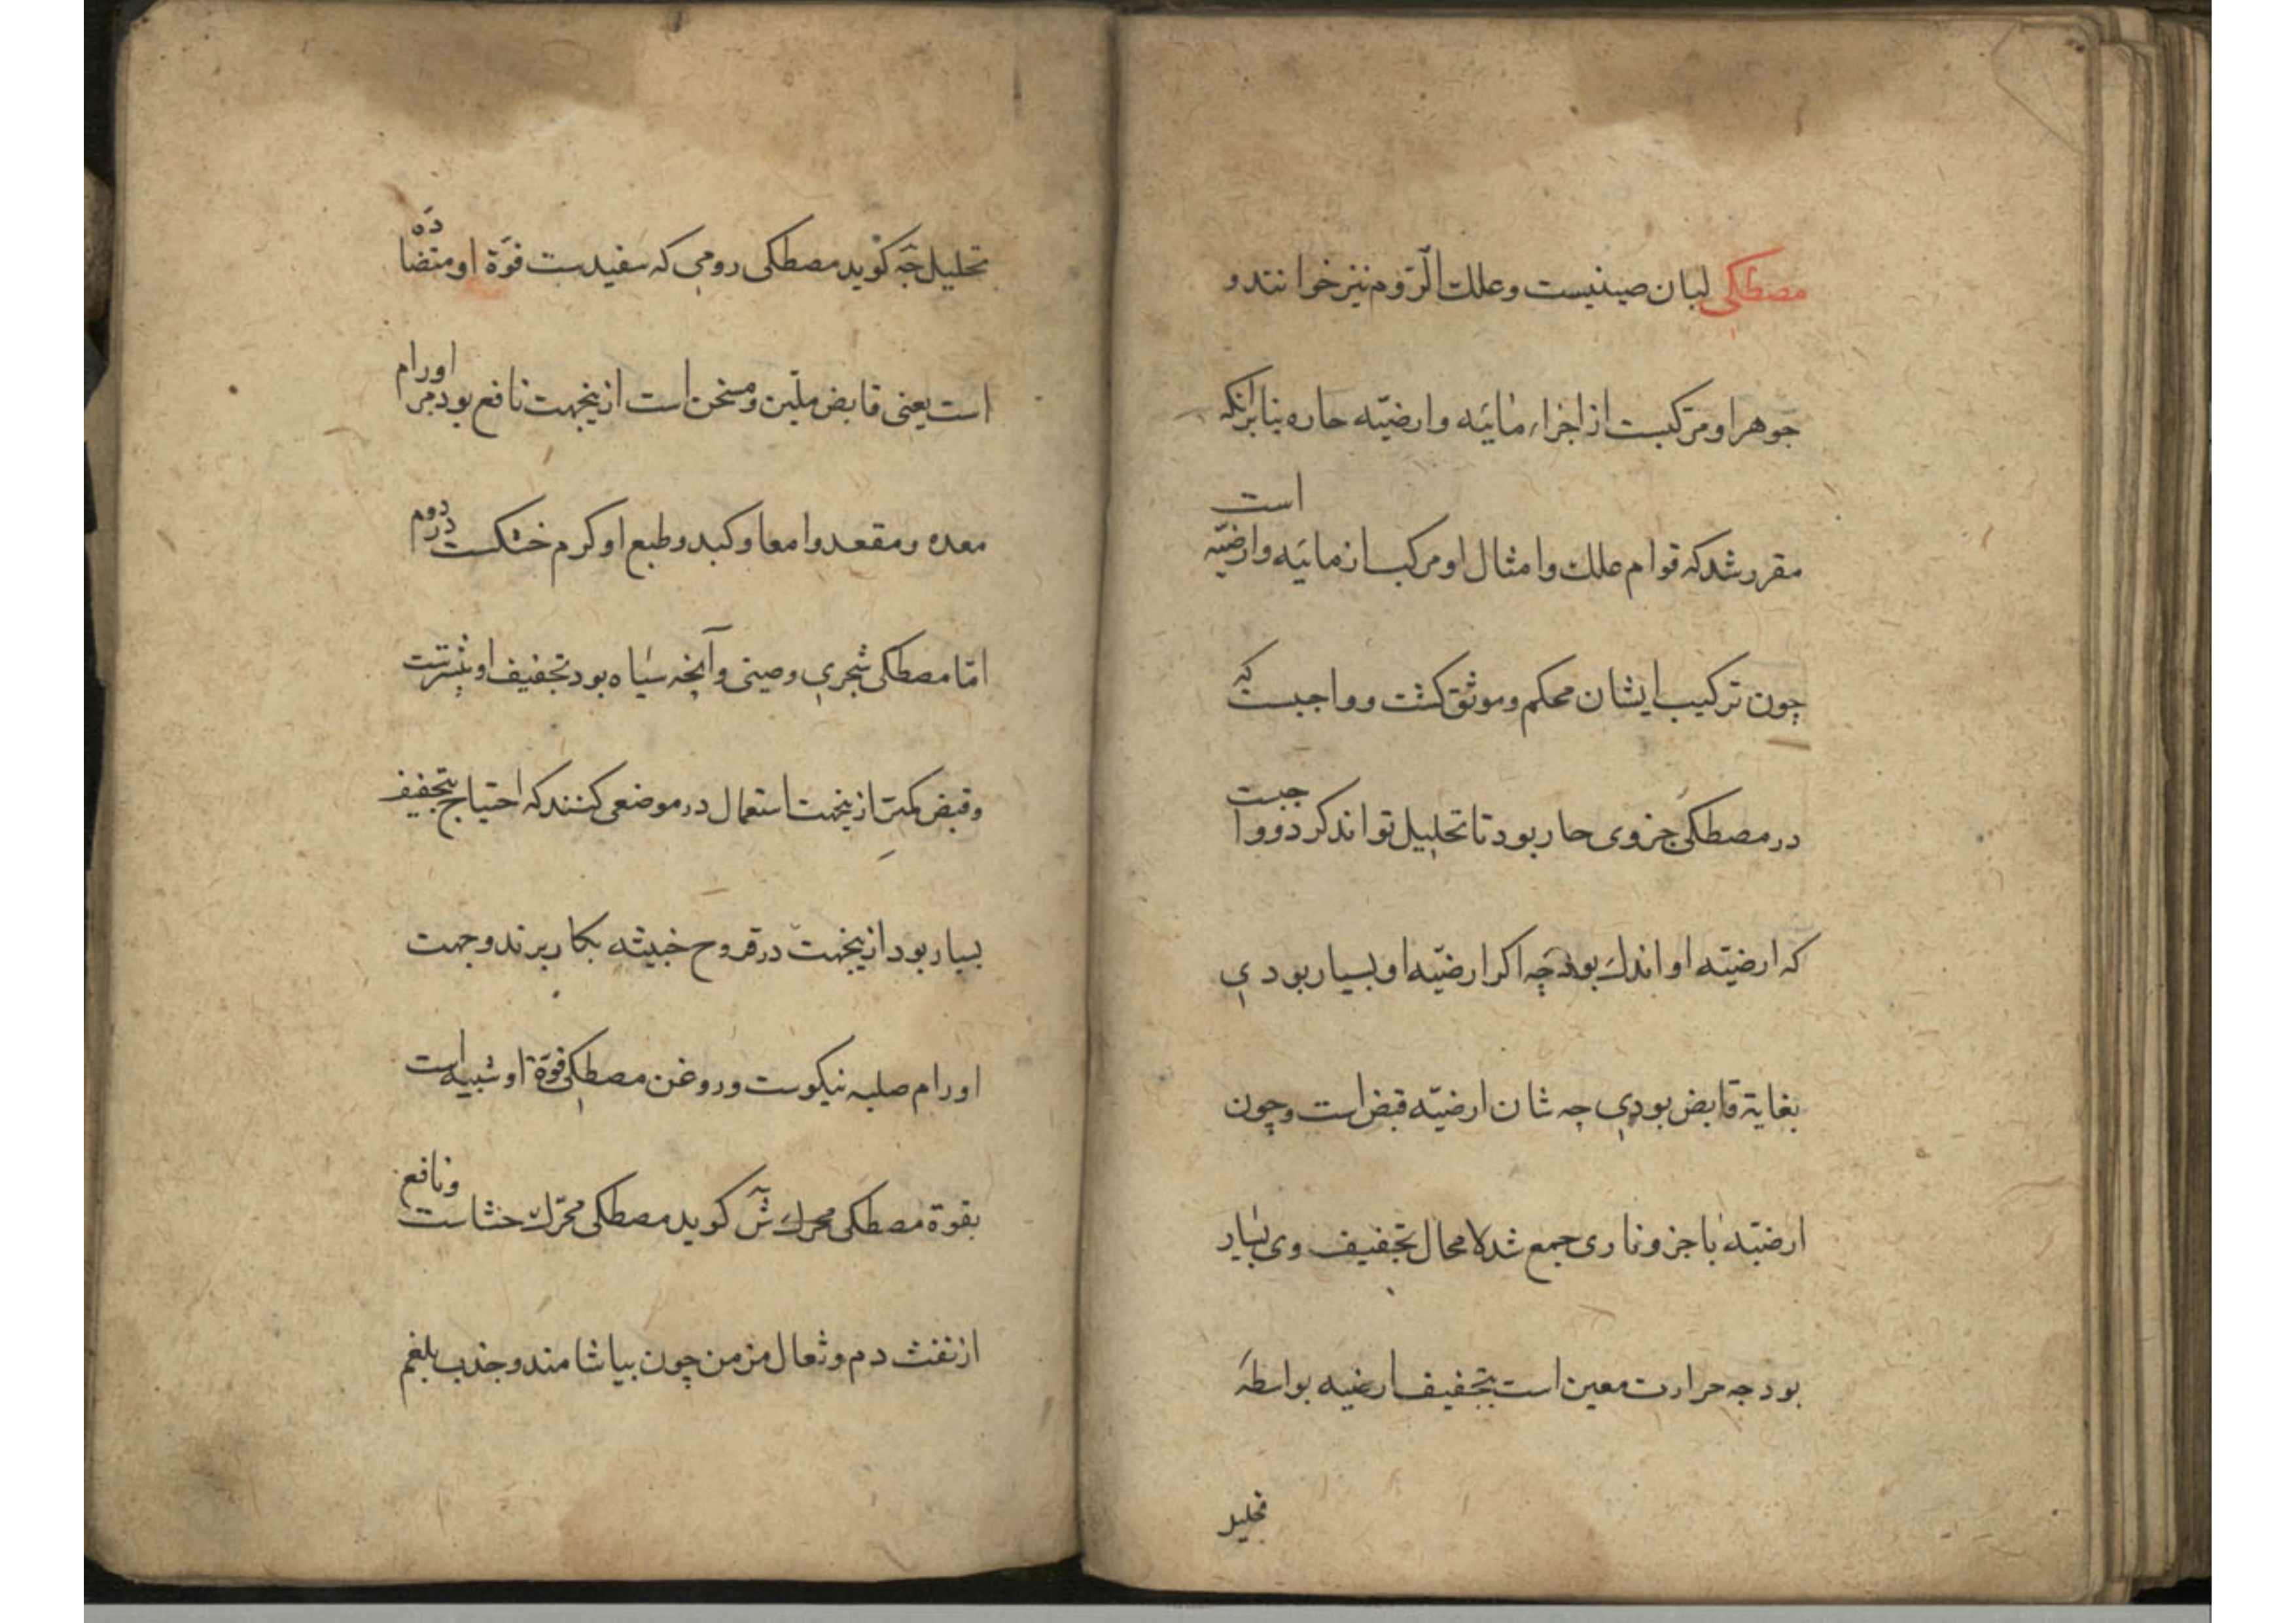 مصطکی لبان صینیست وعلك الرّوم نیز خوانند و
جوهر او مرکبست از اجزاء مائیّه وارضیّه حاره بنابرانکه
مقرر شد که قوام علك وامثال او مرکب از مائیّه وارضیّه است
چون ترکیب ایشان محکم وموثق کشت وواجبست که
در مصطکی جزوی حار بود تا تحلیل تواند کرد وواجبت
که ارضیّه او اندك بود چه اکر ارضیّه او بسیار بودی
بغایة قابض بودی چه شان ارضیّه قبض است وچون
ارضیّه با جزو ناری جمع شد لامحال تجفیف وی بسیار
بود چه حرارت معین است بتجفیف ارضیه بواسطهٔ
تحلیل
تحلیل جّه کوید مصطکی رومی که سفیدست قوّة او متضاده
است یعنی قابض ملیّن ومسخن است ازینجهت نافع بود مر اورام
معده ومقعد وامعا وکبد وطبع او کرم خشکست در دوم
امّا مصطکی شجری وصینی وآنچه سیاه بود تجفیف او بیشترست
وقبض کمتر ازینجهت استعمال در موضعی کنند که احتیاج بتجفیف
بسیار بود ازینجهت در قروح خبیثه بکار برند وجهت
اورام صلبه نیکوست وروغن مصطکی قوّة او شبیه است
بقوة مصطکی محرك ش کوید مصطکی محرّك حشاست ونافع
از نفث دم وثعال مزمن چون بیاشامند وجذب بلغم